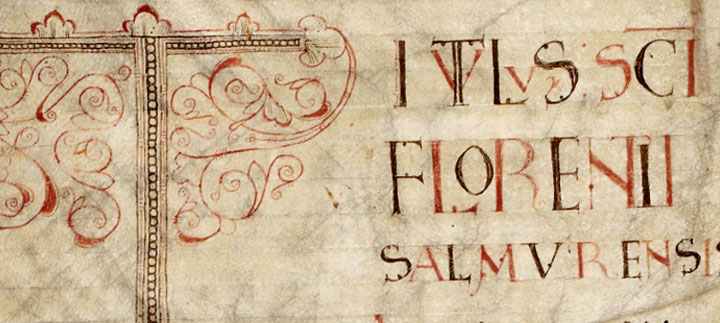 TITVLVS SCI
FLORENTII
SALMVRENSIS